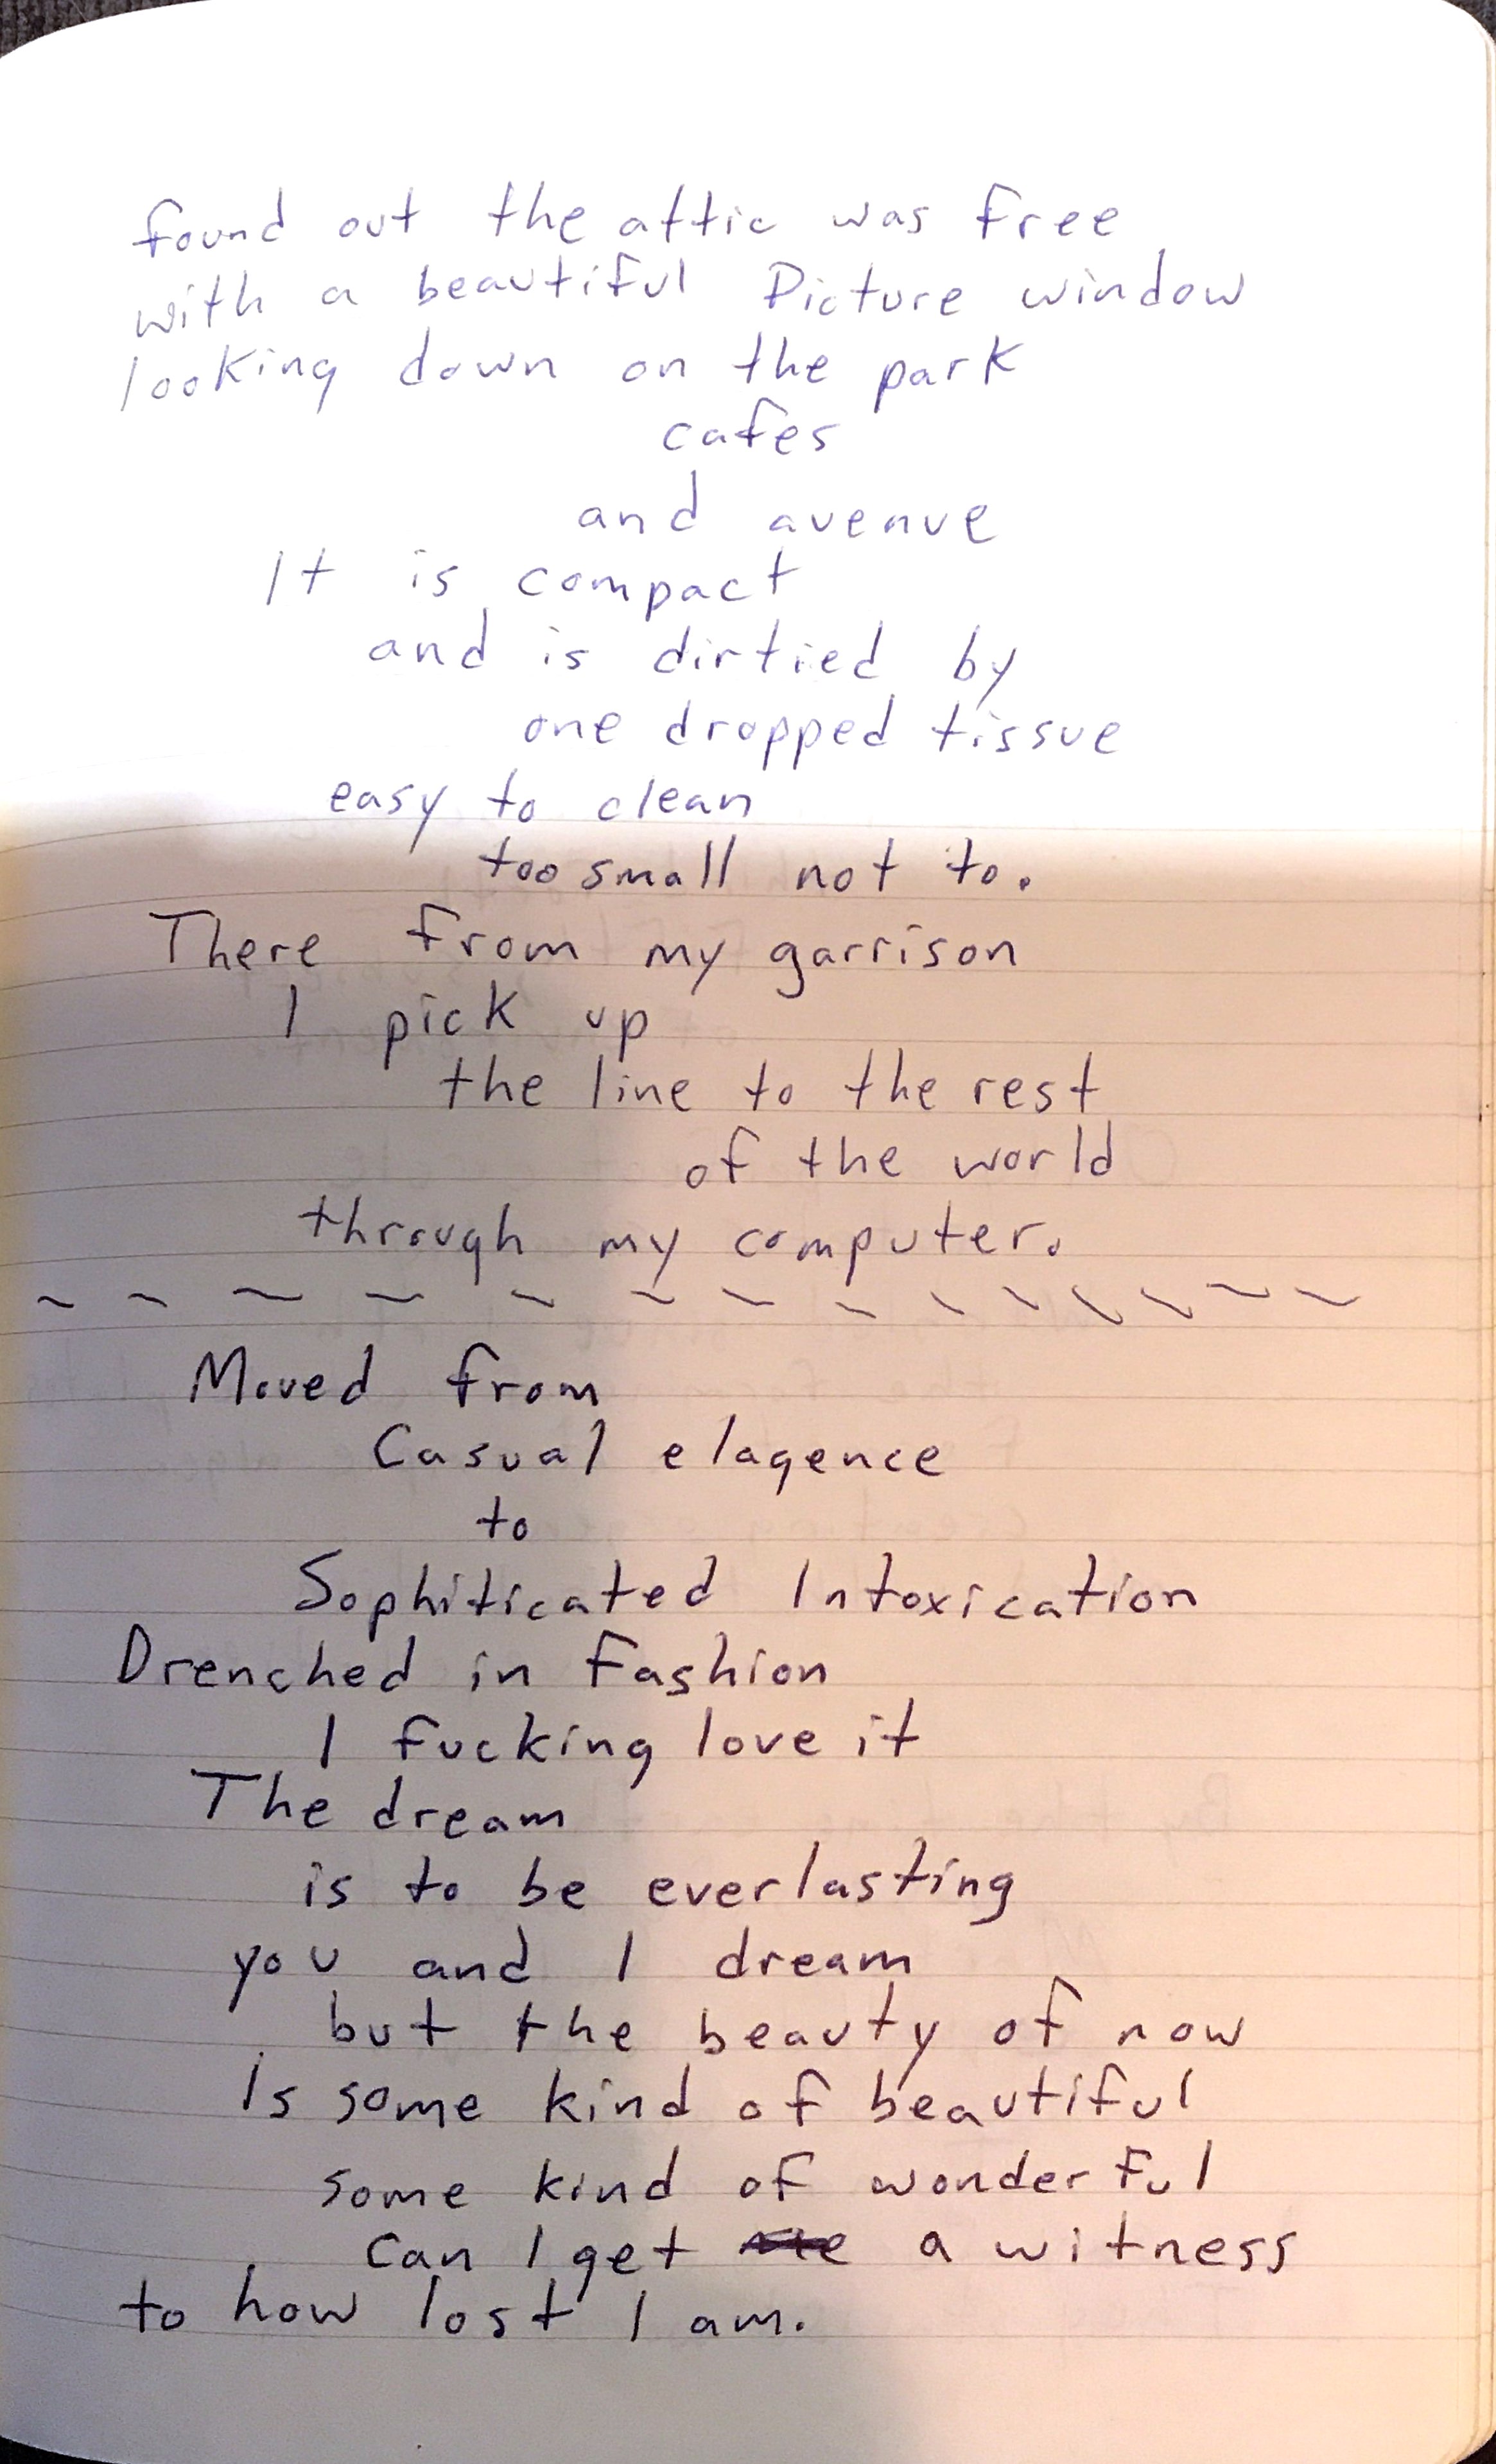 found out the attic was free
with a beautiful Picture window
looking down on the park
cafes
and avenue
It is compact
and is dirtied by
one dropped tissue
easy to clean
too small not to.
There from my garrison
I pick up
the line to the rest
of the world
through my computer.
~ ~ ~ ~ ~ ~ ~ ~ ~ ~ ~ ~ ~ ~
Moved from
Casual elagence
to
Sophiticated Intoxication
Drenched in Fashion
I fucking love it
The dream
is to be everlasting
you and I dream
but the beauty of now
Is some kind of beautiful
some kind of wonderful
Can I get a witness
to how lost I am.